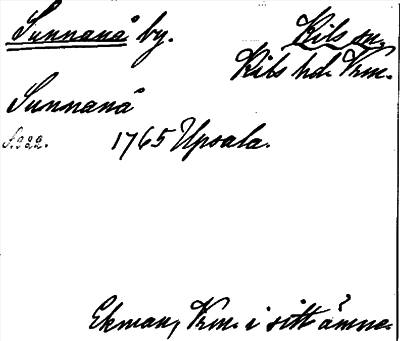 Sunnanå by. Kils sn.
Kils hd. Vrm.
Sunnanå
S. 222. 1765 Upsala.
Ekman, Vrm. i sitt ämne.